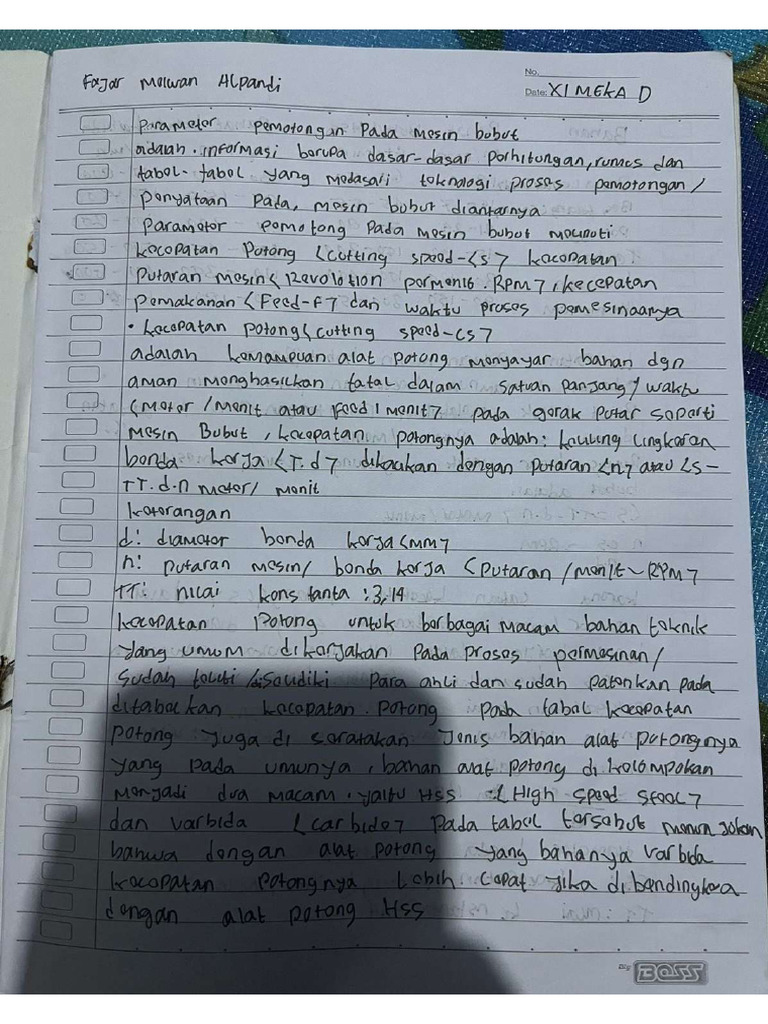 Fajar Molwan Alpandi
No.
Date: XI MEKA D
Parameter pemotongan Pada mesin bubut
adalah. informasi berupa dasar-dasar perhitungan, rumus dan
tabel-tabel yang medasari teknologi proses pemotongan /
penyataan pada, mesin bubut diantarnya
Parameter pemotong Pada mesin bubut meliputi
kecepatan Potong <Cutting speed-<s> kecepatan
Putaran mesin <Revolotion permenit. RPM>, kecepatan
pemakanan <Feed-F> dan waktu proses pemesinaanya
• kecepatan potong <cutting speed-cs>
adalah kemampuan alat potong menyayar bahan dgn
aman menghasilkan tatal dalam satuan panjang / waktu
<meter / menit atau feed / menit> pada gerak putar seperti
mesin Bubut, kecepatan potongnya adalah: keliling lingkaran
benda kerja <T.d> dikalikan dengan putaran <n> atau <s-
TT.d.n meter / menit
keterangan
d: diameter benda kerja <MM>
n: putaran mesin / benda kerja <putaran / menit ~ RPM>
TT: nilai konstanta : 3,14
kecepatan potong untuk berbagai macam bahan teknik
yang umum dikerjakan Pada proses permesinan /
sudah teliti / diseludiki para ahli dan sudah patenkan pada
ditabelkan kecepatan. potong pada tabel kecepatan
potong juga di seratakan jenis bahan alat potongnya
yang pada umunya, bahan alat potong di kelompokan
menjadi dua macam. yaitu HSS <High speed steel>
dan varbida <carbide> Pada tabel tersebut menunjokan
bahwa dengan alat potong yang bahanya varbida
kecepatan potongnya lebih cepat jika di bendingkea
dengan alat potong HSS
By BOSS